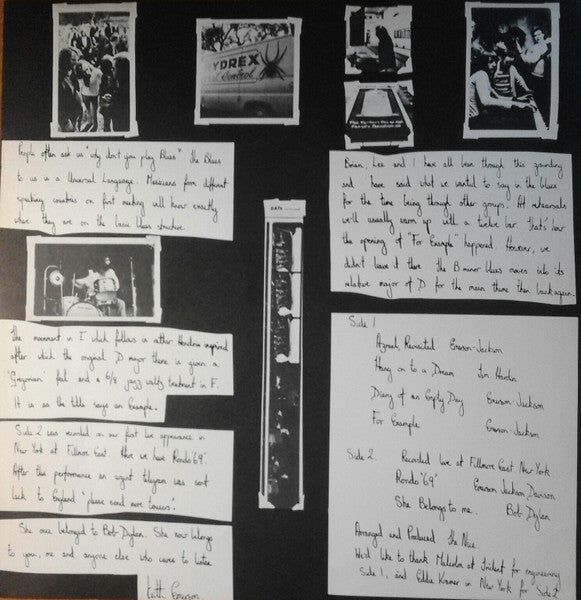 YDREX
Control
People often ask us "why don't you play Blues" the Blues
to us is a Universal Language. Musicians from different
speaking countries on first meeting will know exactly
where they are on the basic blues structure.
Brian, Lee and I have all been through this grounding
and have said what we wanted to say in the blues
for the time being through other groups. At rehearsals
we'll usually warm up with a twelve bar. That's how
the opening of "For Example" happened. However, we
didn't leave it there the B minor blues moves into its
relative major of D for the main theme then back again.
The movement in I which follows is rather Hendrix inspired
after which the original D major theme is given a
'Gregorian' feel and a 6/8 jazz waltz treatment in F.
It is as the title says an Example.
Side 2 was recorded on our first live appearance in
New York at Fillmore East. Here we have Rondo '69'.
After this performance an urgent telegram was sent
back to England "please send more trousers".
She once belonged to Bob Dylan. She now belongs
to you, me and anyone else who cares to listen
Keith Emerson.
DATE
Side 1
Azrael Revisited Emerson-Jackson
Hang on to a Dream Tim Hardin
Diary of an Empty Day Emerson-Jackson
For Example Emerson-Jackson
Side 2. Recorded live at Fillmore East New York
Rondo '69' Emerson Jackson Davison
She Belongs to me. Bob Dylan
Arranged and Produced The Nice
We'd like to thank Malcolm at Trident for engineering
Side 1, and Eddie Kramer in New York for Side 2